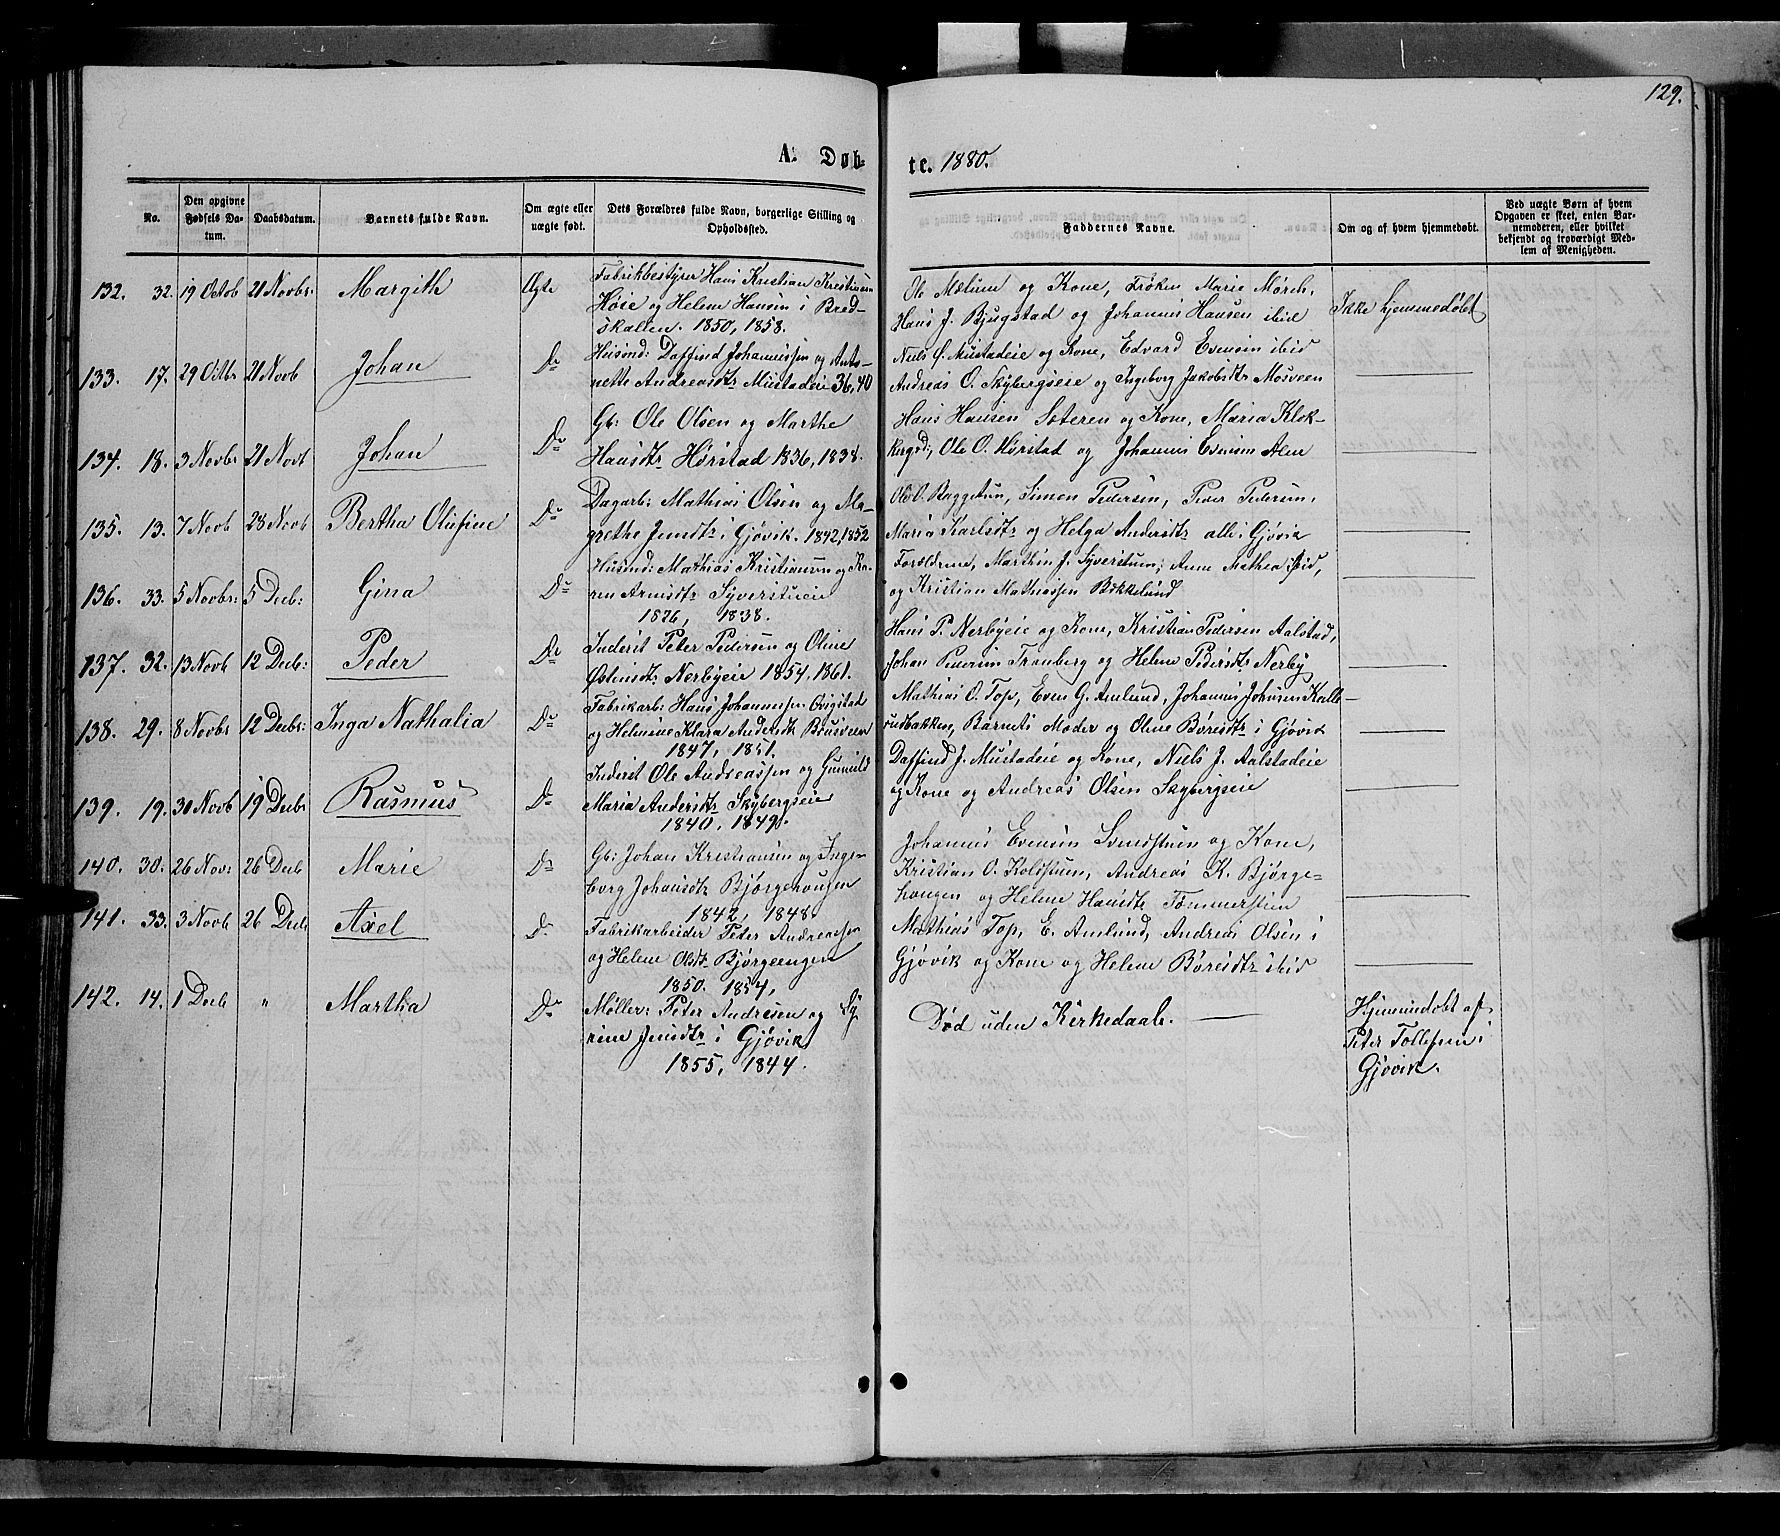 129.
A. Døb-
te. 1880.
No.
Den opgivne Fødsels Datum.
Daabsdatum.
Barnets fulde Navn.
Om ægte eller uægte født.
Dets Forældres fulde Navn, borgerlige Stilling og Opholdssted.
Faddernes Navne.
Om og af hvem hjemmedøbt.
Ved uægte Børn af hvem Opgaven er skeet, enten Barnemoderen, eller hvilket bekjendt og troværdigt Medlem af Menigheden.
132. 32. 19 Octob 21 Novbr: Margith Ægte
Fabrikbestyrer Hans Kristian Kristiansen
Høie og Helene Hansen i Bred-
skallen. 1850, 1858.
Ole Mælum og Kone, Frøken Marie Mørch,
Hans J. Bjugstad og Johannes Hansen ibid
Ikke hjemmedøbt
133. 17. 29 Octbr 21 Novb Johan Do
Husmd: Daffind Johannessen og Anto-
nette Andreasdtr Mustadeie 36, 40
Niels O. Mustadeie og Kone, Edvard Evensen ibid
Andreas O. Skybergseie og Ingeborg Jakobsdtr Mosveen
134. 18. 3 Novbr 21 Novb Johan Do
Gb: Ole Olsen og Marthe
Hansdtr Hørstad 1836, 1838.
Hans Hansen Sæteren og Kone, Maria Klok-
kergrd:, Ole O. Hørstad og Johannes Evensen Alm
135. 13. 7 Novb 28 Novb Bertha Olufine Do
Dagarb: Mathias Olsen og Ma-
grethe Jensdtr i Gjøvik. 1842, 1852
Ole O. Baggetun, Simon Pedersen, Peder Pedersen,
Maria Karlsdtr og Helga Andersdtr alle i Gjøvik
136. 33. 5 Novbr: 5 Decb: Gina Do
Husmd: Mathias Kristiansen og Ka-
ren Arnesdtr Syverstueie
1826, 1838.
Forældrene, Marthin J. Syverstuen, Anne Mathea ibid,
og Kristian Mathiassen Bekkelund
137. 32. 13 Novb 12 Decb: Peder Do
Inderst Peter Pedersen og Oline
Østensdtr Nerbyeie 1854, 1861.
Hans P. Nerbyeie og Kone, Kristian Pedersen Aalstad,
Johan Pedersen Tranberg og Helene Pedersdtr Nerby
138. 29. 8 Novbr 12 Decbr: Inga Nathalia Do
Fabrikarb: Hans Johannessen Qvigstad
og Helmine Klara Andersdtr Brusveen
1847, 1851.
Mathias O. Top, Even G. Amlund, Johannes Johnsen Kalle-
rudbakken, Barnets Moder og Oline Børesdtr i Gjøvik
139. 19. 30 Novb 19 Decbr Rasmus Do
Inderst Ole Andreassen og Gunnild
Maria Andersdtr Skybergseie
1840, 1849.
Daffind J. Mustadeie og Kone, Niels J. Aalstadeie
og Kone og Andreas Olsen Skybergseie
140. 30. 26 Nov: 26 Decb Marie Do
Gb: Johan Kristiansen og Inge-
borg Johansdtr Bjørgehougen
1842, 1848
Johannes Evensen Svenstuen og Kone,
Kristian O. Koldstuen, Andreas K. Bjørge-
hougen og Helene Hansdtr Tømmerstuen
141. 33. 3 Novb 26 Decb Axel Do
Fabrikarbeider Peter Andreassen
og Helene Olsdtr Bjørgeengen
1850. 1854,
Mathias Top, E. Amlund, Andreas Olsen i
Gjøvik og Kone og Helene Børesdtr ibid
142. 14. 1 Decb " Martha Do
Møller: Peter Andresen og Sy-
rine Jensdtr i Gjøvik
1855, 1844.
Død uden Kirkedaab.
Hjemmedøbt af
Peter Tollefsen i
Gjøvik.